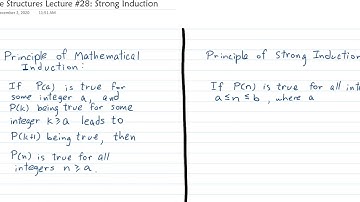 e Structures Lecture #28: Strong Induction
11:51 AM
Principle of Mathematical
Induction:
If P(a) is true for
some integer a, and
P(k) being true for some
integer k ≥ a leads to
P(k+1) being true, then
P(n) is true for all
integers n ≥ a.
Principle of Strong Induction
If P(n) is true for all int
a ≤ n ≤ b, where a